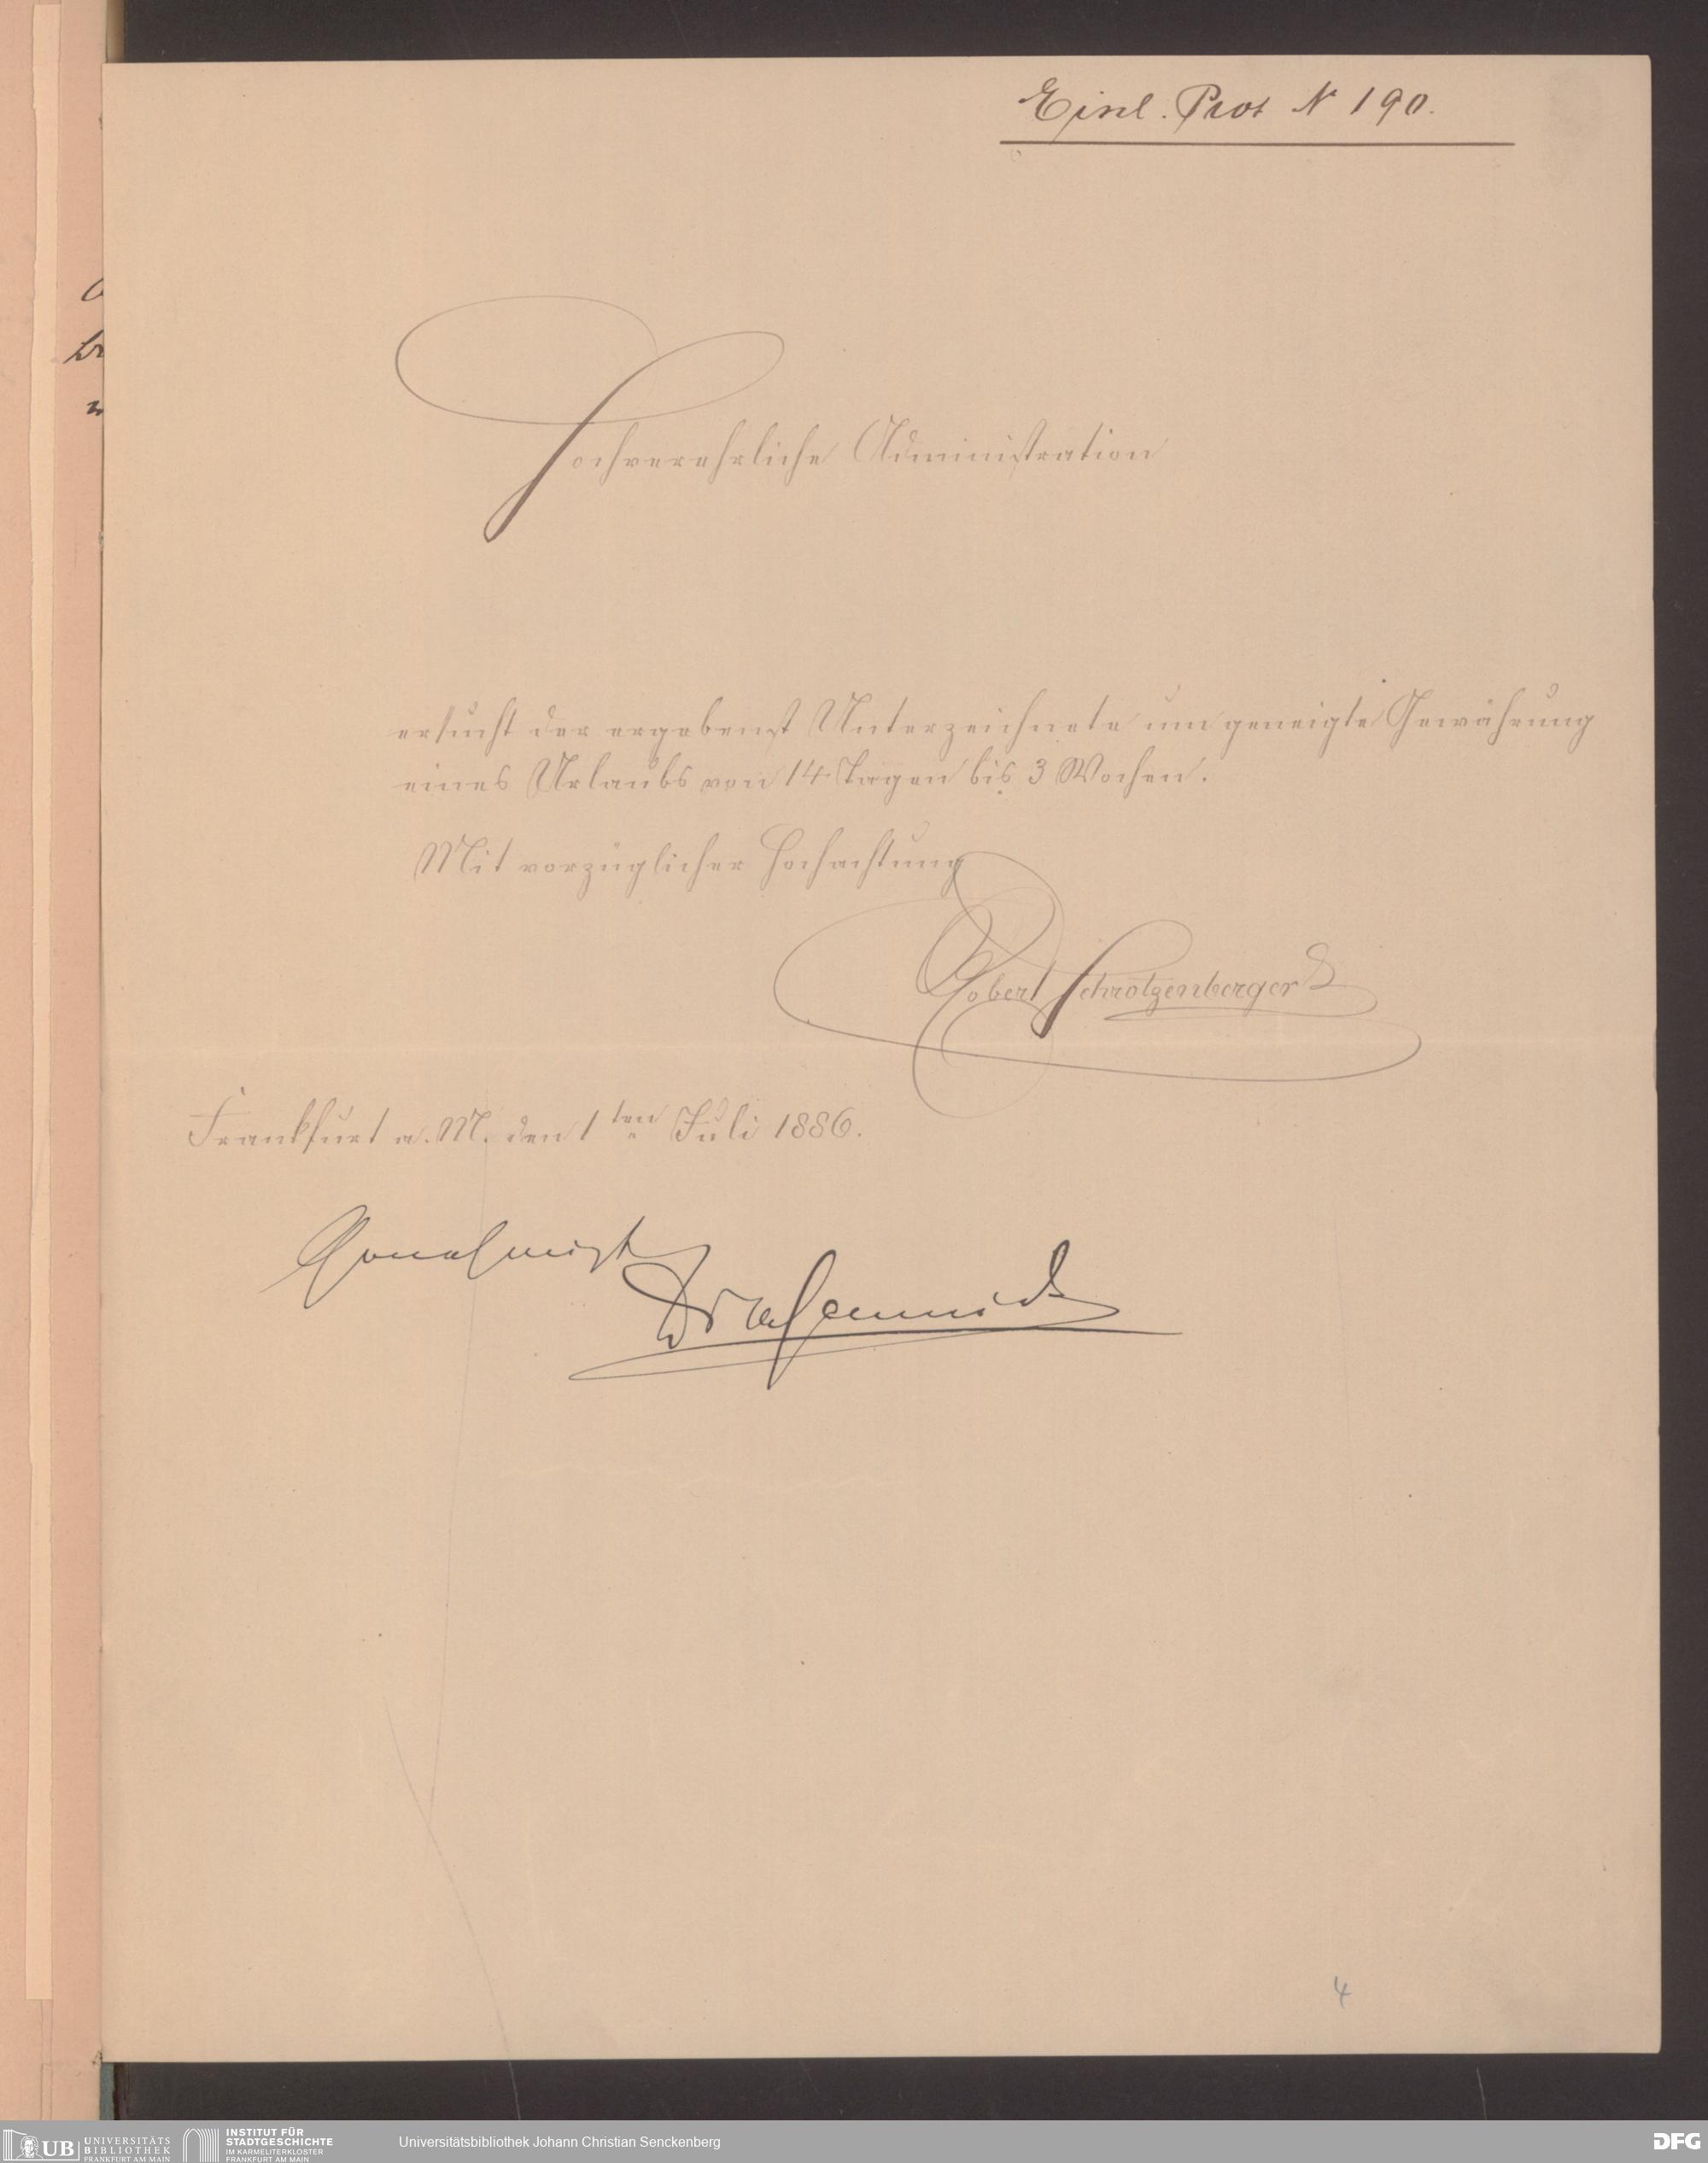 Einl. Prot № 190.
Hochverehrliche Administration
ersucht der ergebenst Unterzeichnete um geneigte Gewährung
eines Urlaubs von 14 Tagen bis 3 Wochen.
Mit vorzüglicher Hochachtung
Robert Schrotzenberger
Frankfurt a. M. den 1ten Juli 1886.
Genehmigt
Dr
4
UB UNIVERSITÄTS
BIBLIOTHEK
FRANKFURT AM MAIN
INSTITUT FÜR
STADTGESCHICHTE
IM KARMELITERKLOSTER
FRANKFURT AM MAIN
Universitätsbibliothek Johann Christian Senckenberg
DFG